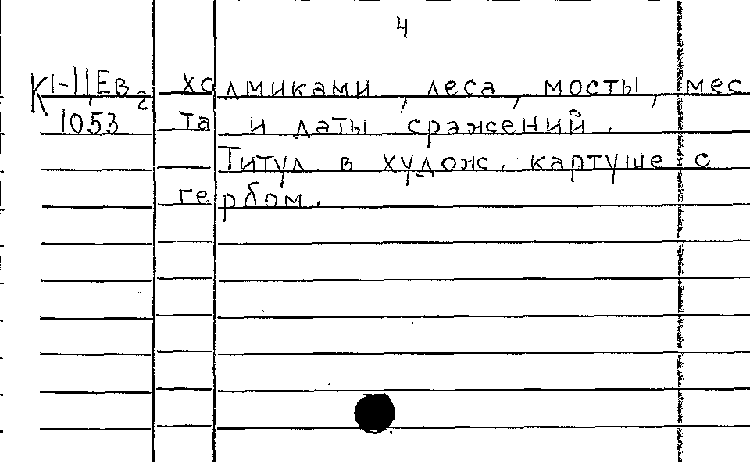 4
К 1-11 Ев. 2 холмиками, леса, мосты, мес
1053 та и даты сражений.
Титул в худож. картуше с
гербом.